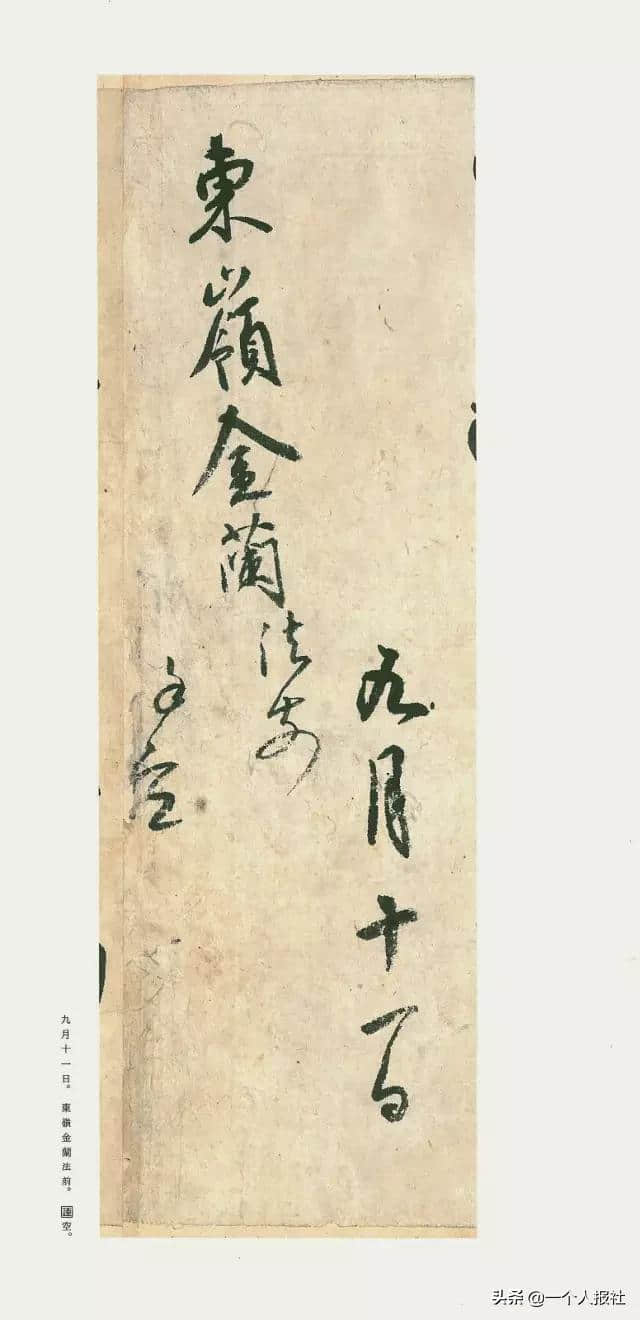 九月十一日
東嶺金蘭法前
謹空
九月十一日。東嶺金蘭法前。謹空。
头条 @一个人报社